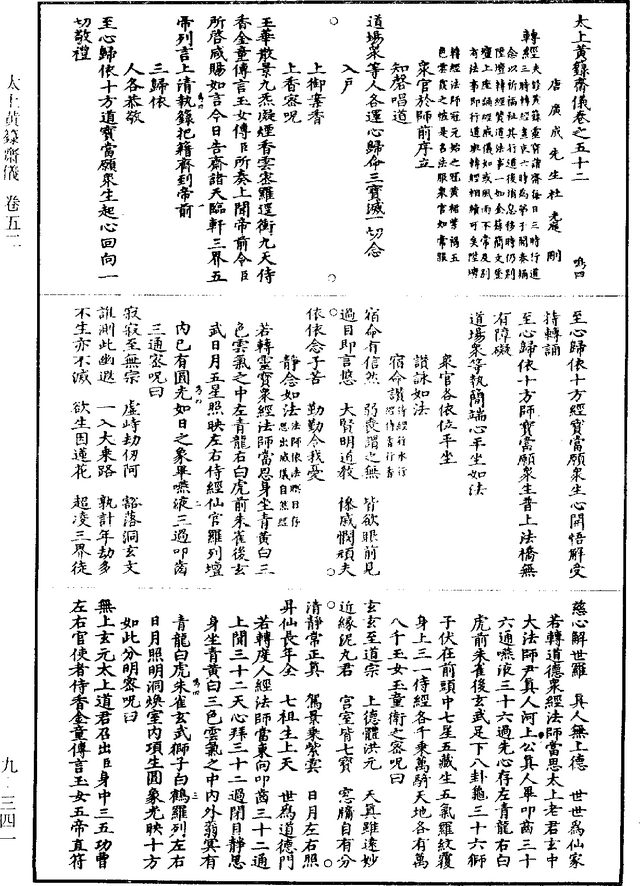 太上黃籙齋儀卷之五十二
唐廣成先生杜光庭刪 鳴四
轉經夫於黃籙靈寶諸齋每日三時行道
轉經三時轉經真文六時為弟子開奏誦
念以祈福祖其行道後消息移時仍別
陞壇轉經贊道法事一如金籙簡文登
壇上座誦經威儀如或風雨不常及別
有法事即行道與轉經相續可矣陞壇
轉經法師冠元始之冠黃褐芳揚五
色雲霞之帔是名法服眾官如常服
眾官於師前序立
知磬唱道
道場眾等人各運心歸命三寶滅一切念
入戶
上御案香
上香密呪
玉華散景九炁凝煙香雲密羅逕衝九天侍
香金童傳言玉女傳臣所奏上聞帝前令臣
所啓咸賜如言今日吉齋諸天臨軒三界五
帝列言上清執籙把籍齊到帝前
三歸依
人各恭敬
至心歸依十方道寶當願眾生起心回向一
切敬禮
至心歸依十方經寶當願眾生心開悟解受
持轉誦
至心歸依十方師寶當願眾生普上法橋無
有障礙
道場眾等執簡端心平坐如法
眾官各依位平坐
讚詠如法
宿命讚
宿命有信然 弱喪謂之無 皆欲眼前見
過目即言悠 大賢明道教 慘慼憫頑夫
依依念子苦 勤勤令我憂
靜念如法
若轉靈寶眾經法師當思身坐青黃白三
色雲氣之中左青龍右白虎前朱雀後玄
武日月五星照映左右侍經仙官羅列壇
內已有圓光如日之象畢嚥液三過叩齒
三通密呪曰
寂寂至無宗 虛峙劫仞阿 豁落洞玄文
誰測此幽遐 一入大乘路 孰計年劫多
不生亦不滅 欲生因蓮花 超凌三界徒
慈心解世羅 真人無上德 世世為仙家
若轉道德眾經法師當思太上老君玄中
大法師尹真人河上公真人畢叩齒三十
六通嚥液三十六過先心存左青龍右白
虎前朱雀後玄武足下八卦龜三十六獅
子伏在前頭中七星五藏生五氣羅紋覆
身上三一侍經各千乘萬騎天地各有萬
八千玉女玉童衛之密呪曰
玄玄至道宗 上德體洪元 天真雖遠妙
近緣泥丸君 宮室皆七寶 窓牖自有分
清靜常正真 駕景乘紫雲 日月左右照
昇仙長年全 七祖生上天 世為道德門
若轉度人經法師當東向叩齒三十二通
上聞三十二天心拜三十二過閉目靜思
身坐青黃白三色雲氣之中內外蓊冥有
青龍白虎朱雀玄武獅子白鶴羅列左右
日月照明洞煥室內項生圓象光映十方
如此分明密呪曰
無上玄元太上道君召出臣身中三五功曹
左右官使者侍香金童傳言玉女五帝直符
太上黃籙齋儀 卷五二
九·三四一